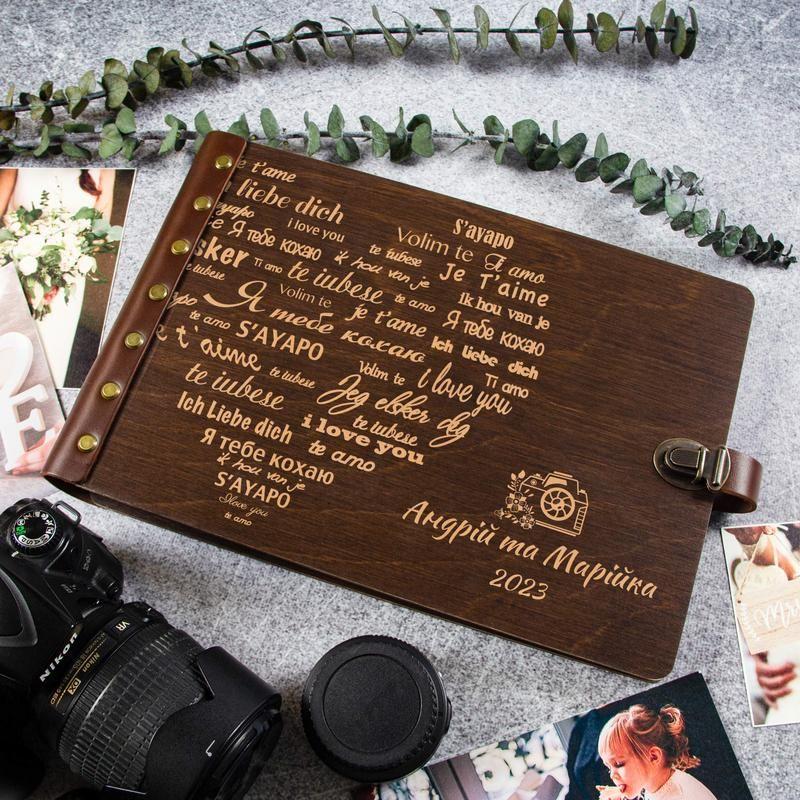 e t'ame
liebe dich
i love you
Я тебе кохаю
ik hou van je
te iubesc
Volim te
S'ayapo
Ti amo
sker
Ti amo
te iubese
te amo
Je T'aime
Ik hou van je
te iubese
Volim te
je t'ame
Я тебе кохаю
Я тебе кохаю
te amo
S'AYAPO
Ich liebe dich
e t'aime
te iubesc
Volim te
i love you
Ti amo
te iubese
Jeg elsker dig
Ich Liebe dich
te iubese
i love you
Я тебе кохаю
te amo
ik hou van je
S'AYAPO
I love you
te amo
Андрій та Марійка
2023
Nikon
VR
Nikon
DX